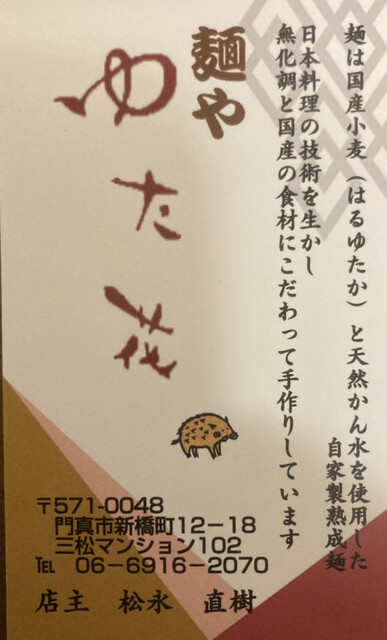 麺は国産小麦（はるゆたか）と天然かん水を使用した
自家製熟成麺
日本料理の技術を生かし
無化調と国産の食材にこだわって手作りしています
麺や
ゆた花
〒571-0048
門真市新橋町12－18
三松マンション102
℡ 06－6916－2070
店主 松永 直樹